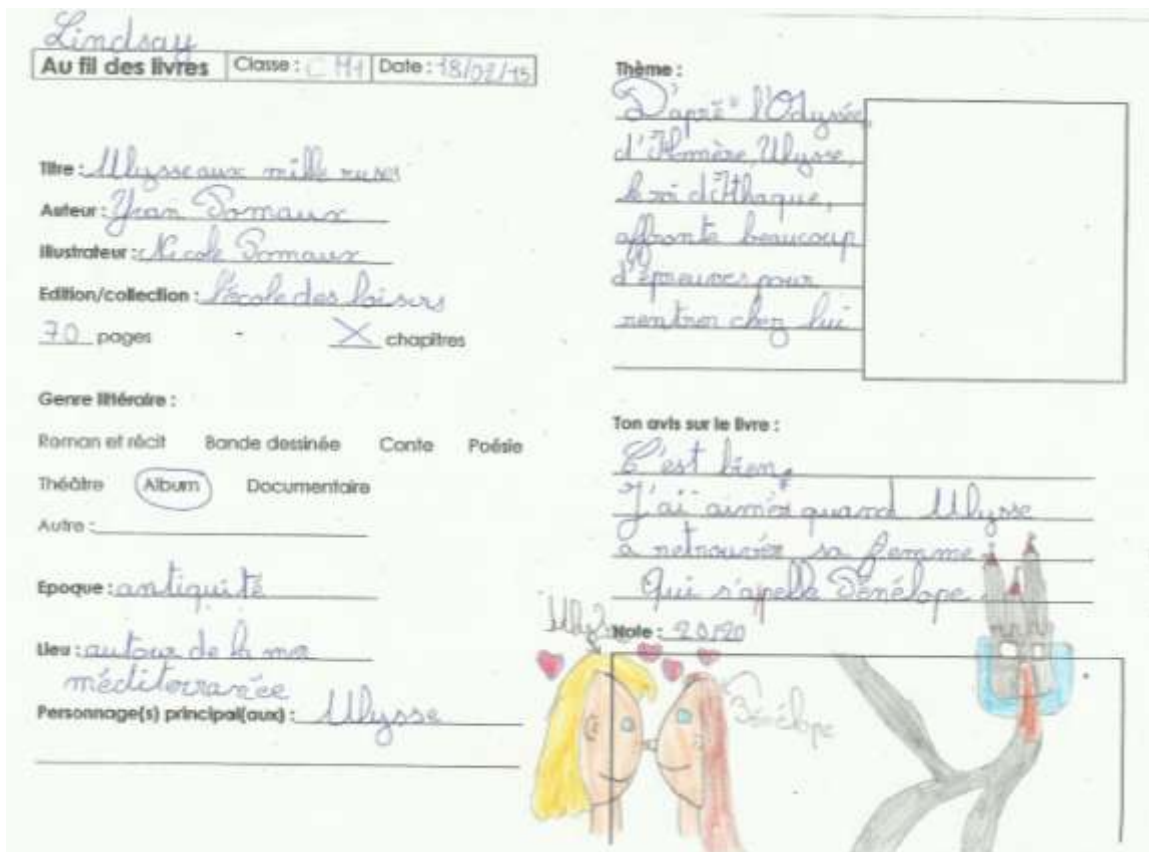 Lindsay
Au fil des livres Classe : CM1 Date : 18/02/15
Titre : Ulysse aux mille ruses
Auteur : Yvan Pomaux
Illustrateur : Nicole Pomaux
Edition/collection : l'école des loisirs
70 pages - X chapitres
Genre littéraire :
Roman et récit Bande dessinée Conte Poésie
Théâtre Album Documentaire
Autre :
Epoque : antiquité
Lieu : autour de la mer
méditerranée
Personnage(s) principal(aux) : Ulysse
Thème :
D'après l'Odyssée,
d'Homère, Ulysse,
le roi d'Ithaque,
affronte beaucoup
d'épreuves pour
rentrer chez lui
Ton avis sur le livre :
C'est bien,
J'ai aimér quand Ulysse
a retrouvér sa femme
Qui s'apelle Pénélope.
Note : 20/20
Ulysse
Pénélope